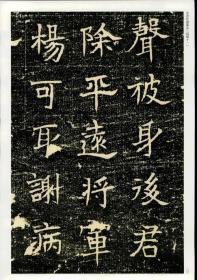 聲被身後君
除平遠將軍
楊可耴謝病